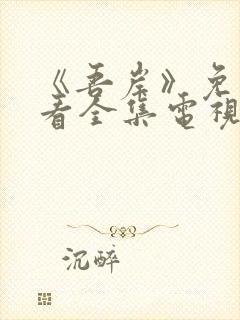 《吾岸》免
看全集電視
沉醉